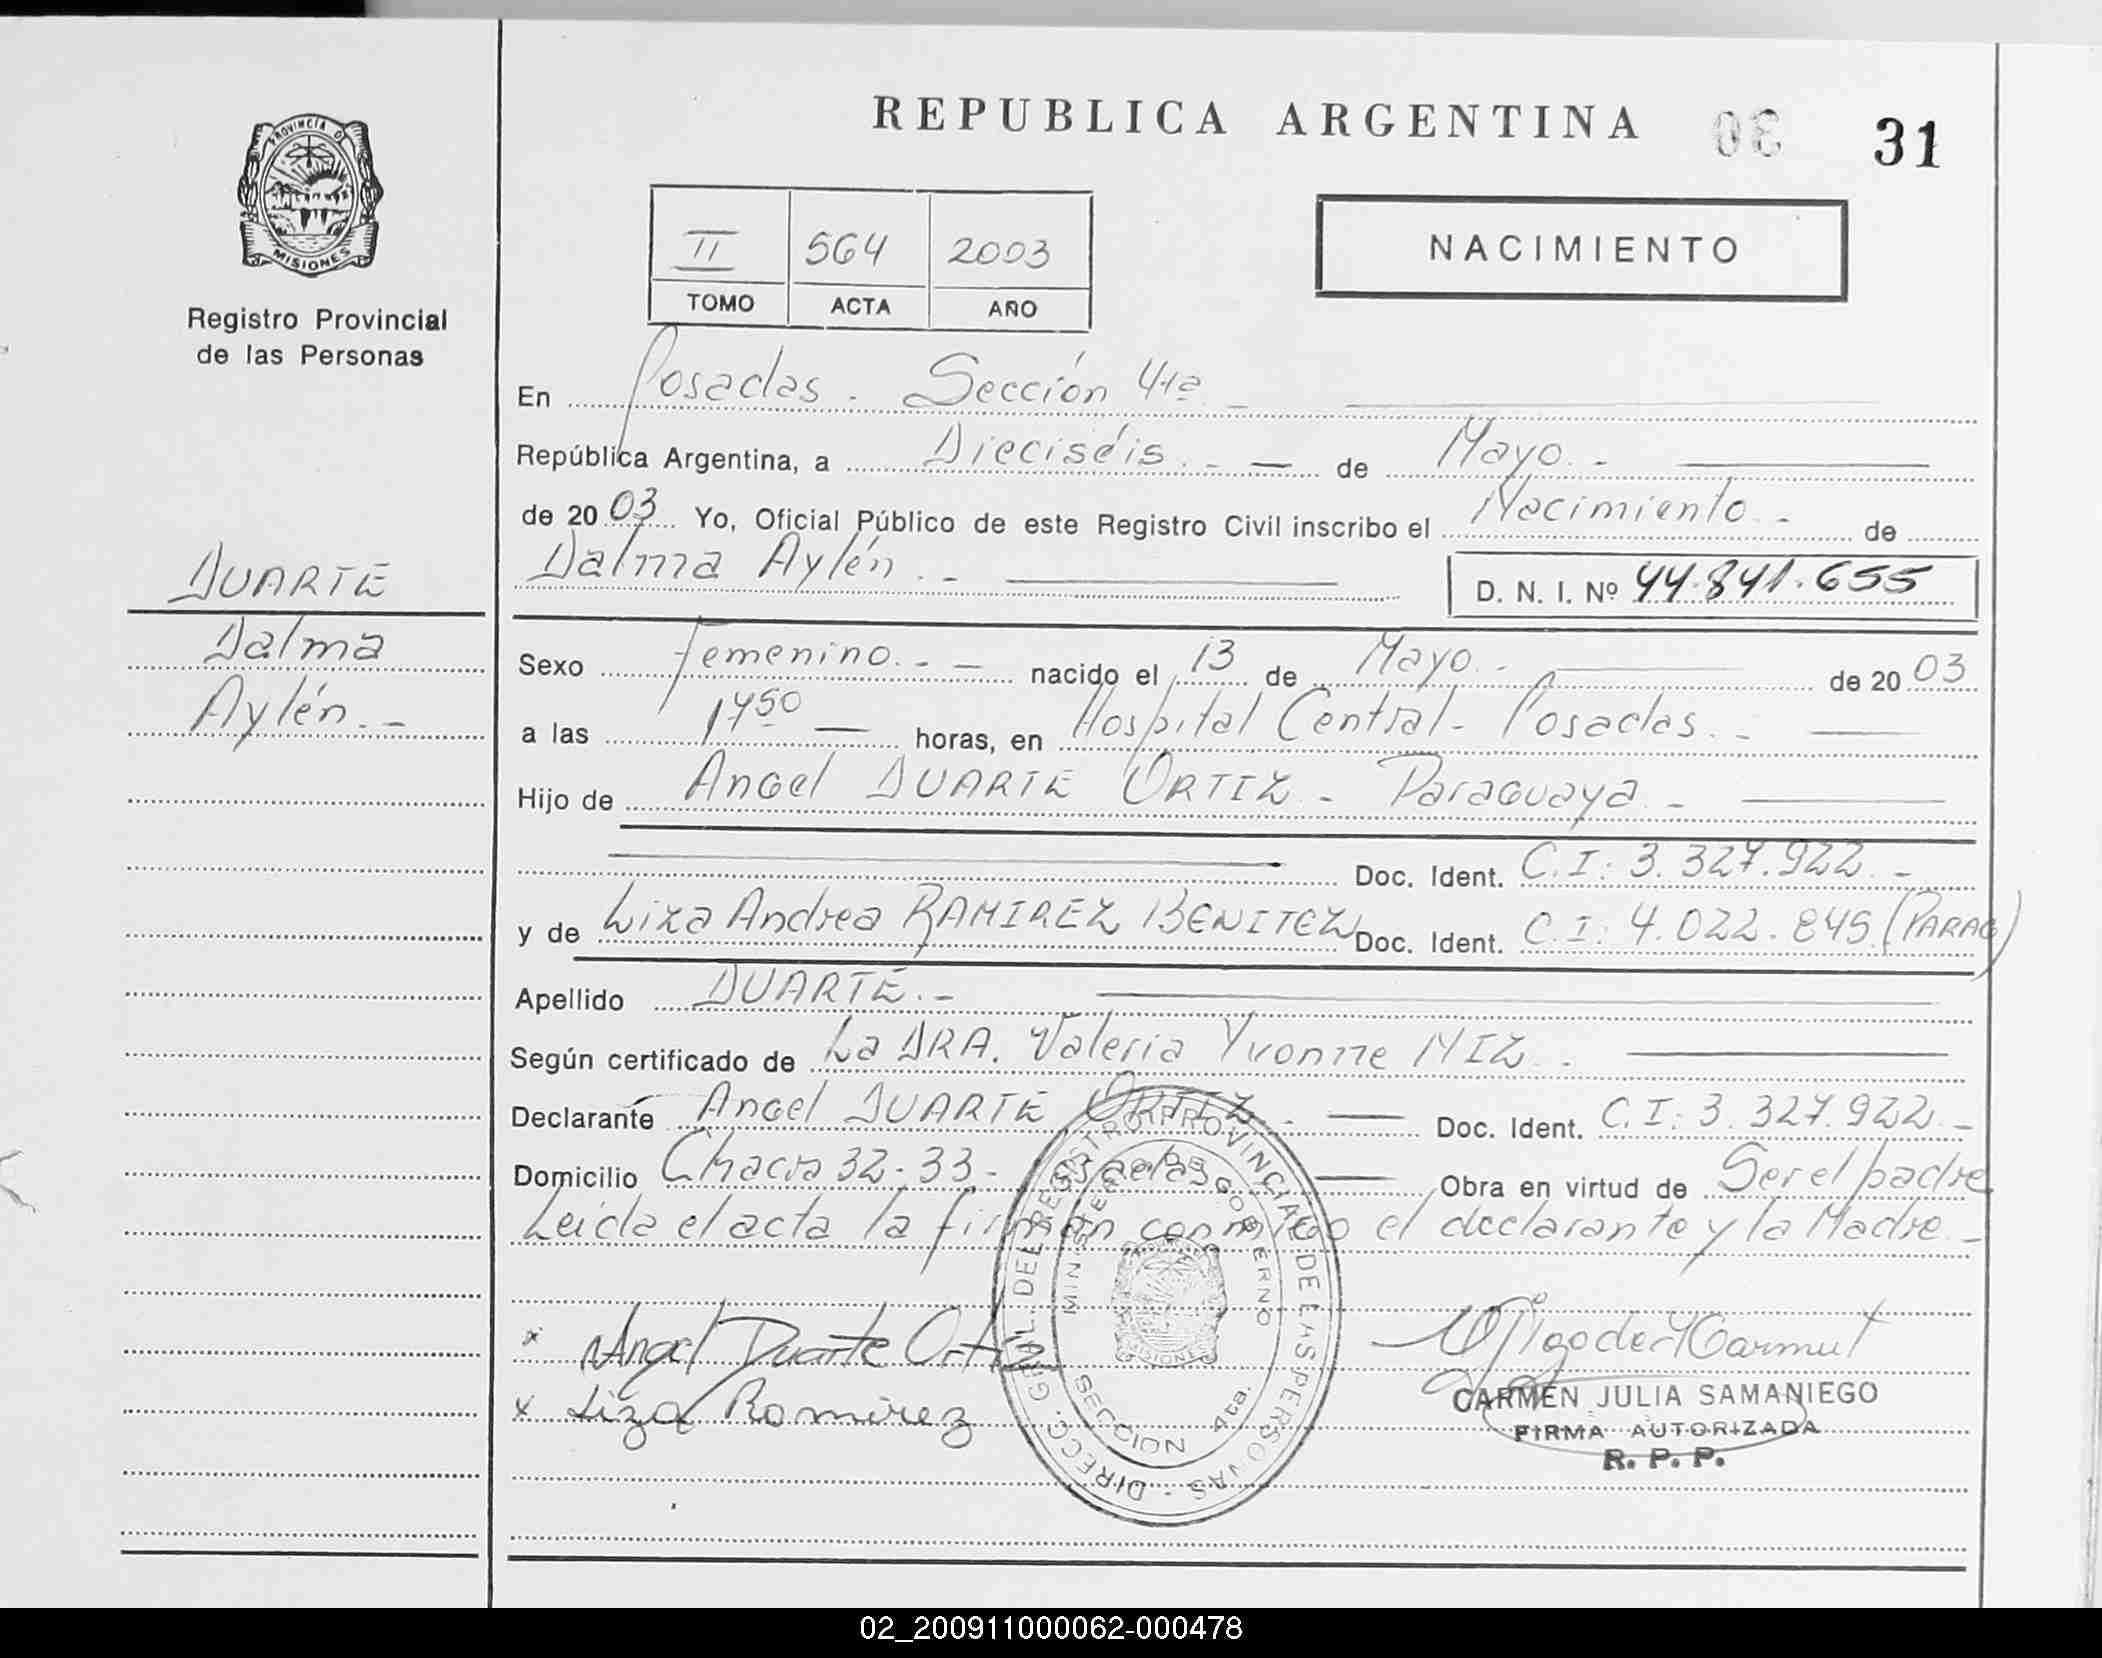 REPUBLICA ARGENTINA 30 31
PROVINCIA DE
MISIONES
Registro Provincial
de las Personas
II 564 2003
TOMO ACTA AÑO
NACIMIENTO
En Posadas. Sección 4ta. -
República Argentina, a Dieciséis. - de Mayo. -
de 20 03 Yo, Oficial Público de este Registro Civil inscribo el Nacimiento. - de
Dalma Aylén. - D. N. I. Nº 44.841.655
DUARTE
Dalma
Aylén. -
Sexo Femenino. - nacido el 13 de Mayo. - de 20 03
a las 1750 horas, en Hospital Central - Posadas. -
Hijo de Angel DUARTE ORTIZ - Paraguaya. -
Doc. Ident. C.I: 3.327.922. -
y de Liza Andrea RAMIREZ BENITEZ Doc. Ident. C.I: 4.022.845 (PARAG)
Apellido DUARTE. -
Según certificado de La DRA. Valeria Yvonne MIZ. -
Declarante Angel DUARTE ORTIZ. - Doc. Ident. C.I: 3.327.922. -
Domicilio Chacra 32-33 - Posadas Obra en virtud de Ser el padre
Leida el acta la firman conmigo el declarante y la Madre. -
x Angel Duarte Ortiz
x Liza Ramirez
DIRECC. GRAL. DEL REGISTRO PROVINCIAL DE LAS PERSONAS
MINISTERIO DE GOBIERNO
MISIONES
SECCION 4ta.
CARMEN JULIA SAMANIEGO
FIRMA AUTORIZADA
R. P. P.
02_200911000062-000478